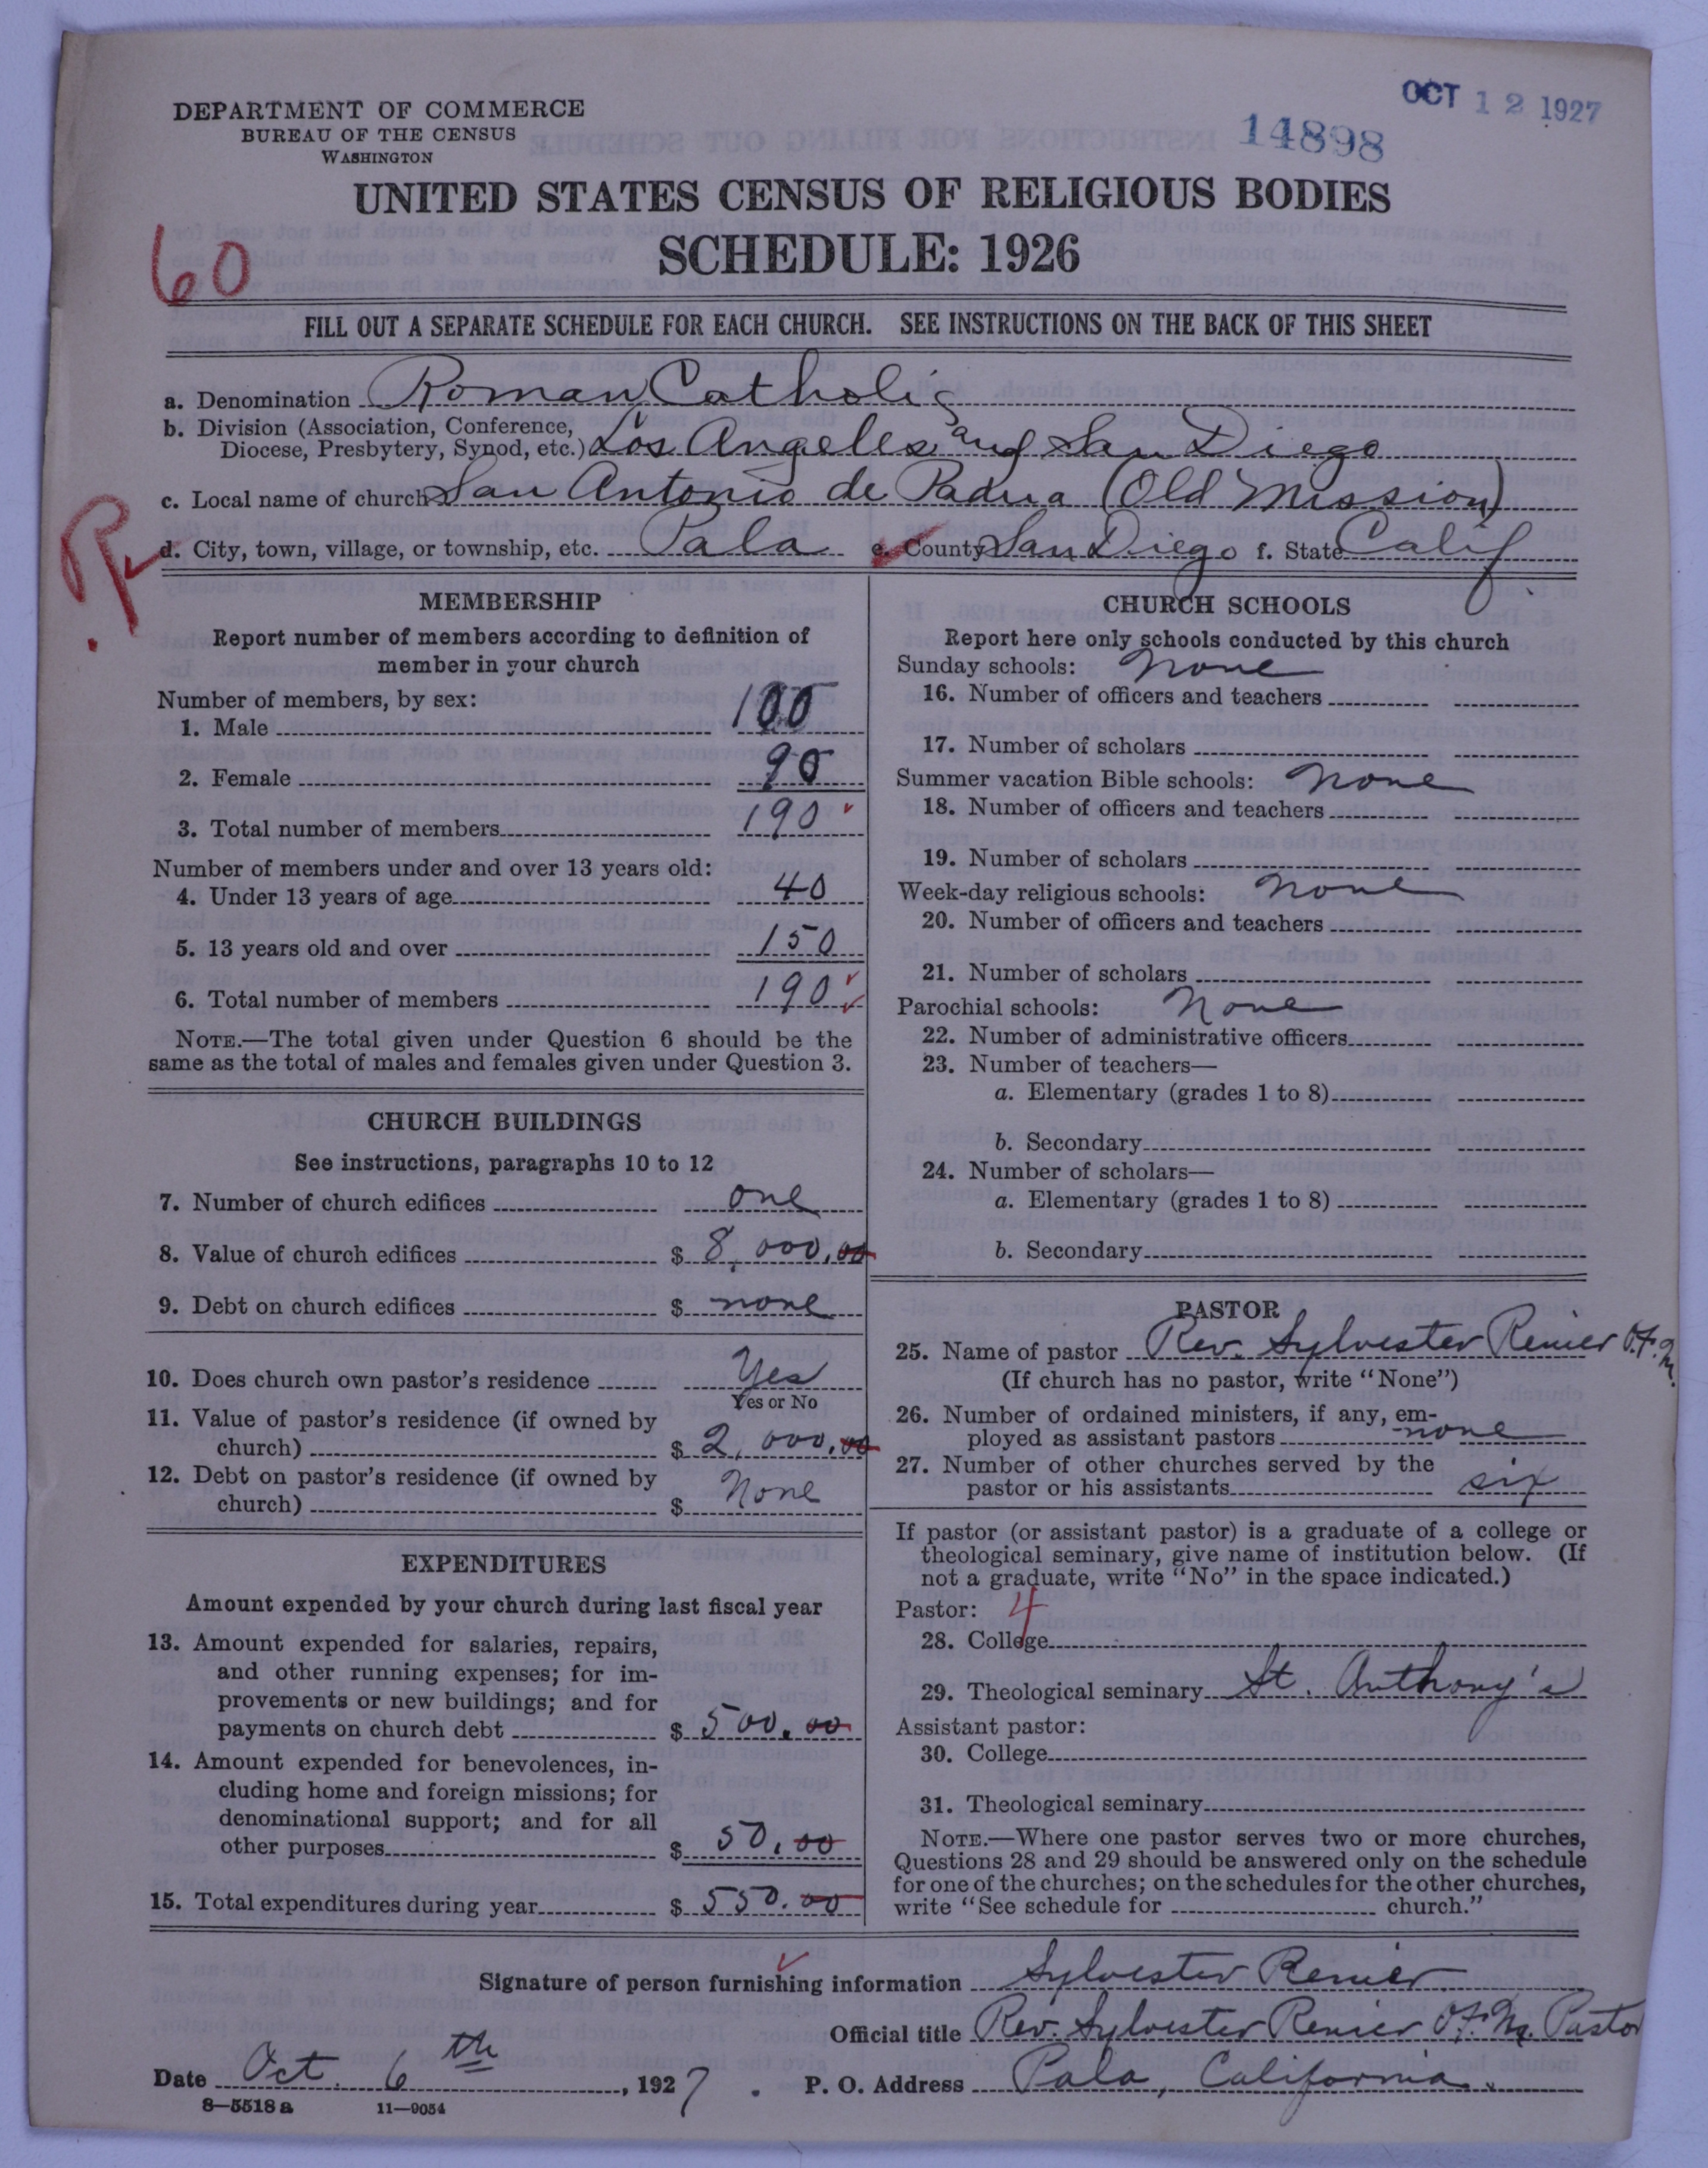 OCT 12 1927
14898
DEPARTMENT OF COMMERCE
BUREAU OF THE CENSUS
WASHINGTON
UNITED STATES CENSUS OF RELIGIOUS BODIES
SCHEDULE: 1926
60
FILL OUT A SEPARATE SCHEDULE FOR EACH CHURCH. SEE INSTRUCTIONS ON THE BACK OF THIS SHEET
a. Denomination Roman Catholic
b. Division (Association, Conference,
Diocese, Presbytery, Synod, etc.) Los Angeles and San Diego
c. Local name of church San Antonio de Padua (Old Mission)
d. City, town, village, or township, etc. Pala e. County San Diego f. State Calif
MEMBERSHIP
Report number of members according to definition of
member in your church
Number of members, by sex:
1. Male 100
2. Female 90
3. Total number of members 190
Number of members under and over 13 years old:
4. Under 13 years of age 40
5. 13 years old and over 150
6. Total number of members 190
NOTE.—The total given under Question 6 should be the
same as the total of males and females given under Question 3.
CHURCH BUILDINGS
See instructions, paragraphs 10 to 12
7. Number of church edifices one
8. Value of church edifices $ 8,000.00
9. Debt on church edifices $ none
10. Does church own pastor's residence Yes
Yes or No
11. Value of pastor's residence (if owned by
church) $ 2,000.00
12. Debt on pastor's residence (if owned by
church) $ None
EXPENDITURES
Amount expended by your church during last fiscal year
13. Amount expended for salaries, repairs,
and other running expenses; for im-
provements or new buildings; and for
payments on church debt $ 500.00
14. Amount expended for benevolences, in-
cluding home and foreign missions; for
denominational support; and for all
other purposes $ 50.00
15. Total expenditures during year $ 550.00
CHURCH SCHOOLS
Report here only schools conducted by this church
Sunday schools: None
16. Number of officers and teachers
17. Number of scholars
Summer vacation Bible schools: None
18. Number of officers and teachers
19. Number of scholars
Week-day religious schools: None
20. Number of officers and teachers
21. Number of scholars
Parochial schools: None
22. Number of administrative officers
23. Number of teachers—
a. Elementary (grades 1 to 8)
b. Secondary
24. Number of scholars—
a. Elementary (grades 1 to 8)
b. Secondary
PASTOR
25. Name of pastor Rev. Sylvester Renier O.F.M.
(If church has no pastor, write "None")
26. Number of ordained ministers, if any, em-
ployed as assistant pastors none
27. Number of other churches served by the
pastor or his assistants six
If pastor (or assistant pastor) is a graduate of a college or
theological seminary, give name of institution below. (If
not a graduate, write "No" in the space indicated.)
Pastor: 4
28. College
29. Theological seminary St. Anthony's
Assistant pastor:
30. College
31. Theological seminary
NOTE.—Where one pastor serves two or more churches,
Questions 28 and 29 should be answered only on the schedule
for one of the churches; on the schedules for the other churches,
write "See schedule for church."
Signature of person furnishing information Sylvester Renier
Official title Rev. Sylvester Renier O.F.M. Pastor
Date Oct. 6th, 1927. P. O. Address Pala, California.
8—5518 a 11—9054